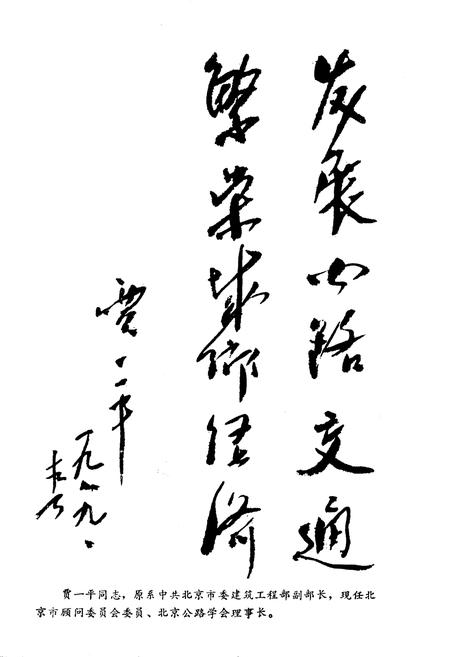 发展公路交通
繁荣城乡经济
贾一平
一九八九、
春
贾一平同志，原系中共北京市委建筑工程部副部长，现任北
京市顾问委员会委员、北京公路学会理事长。